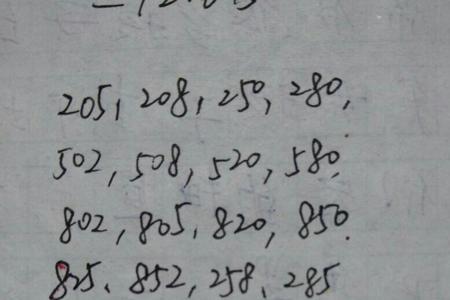 205, 208, 250, 280,
502, 508, 520, 580,
802, 805, 820, 850.
825、852, 258、285